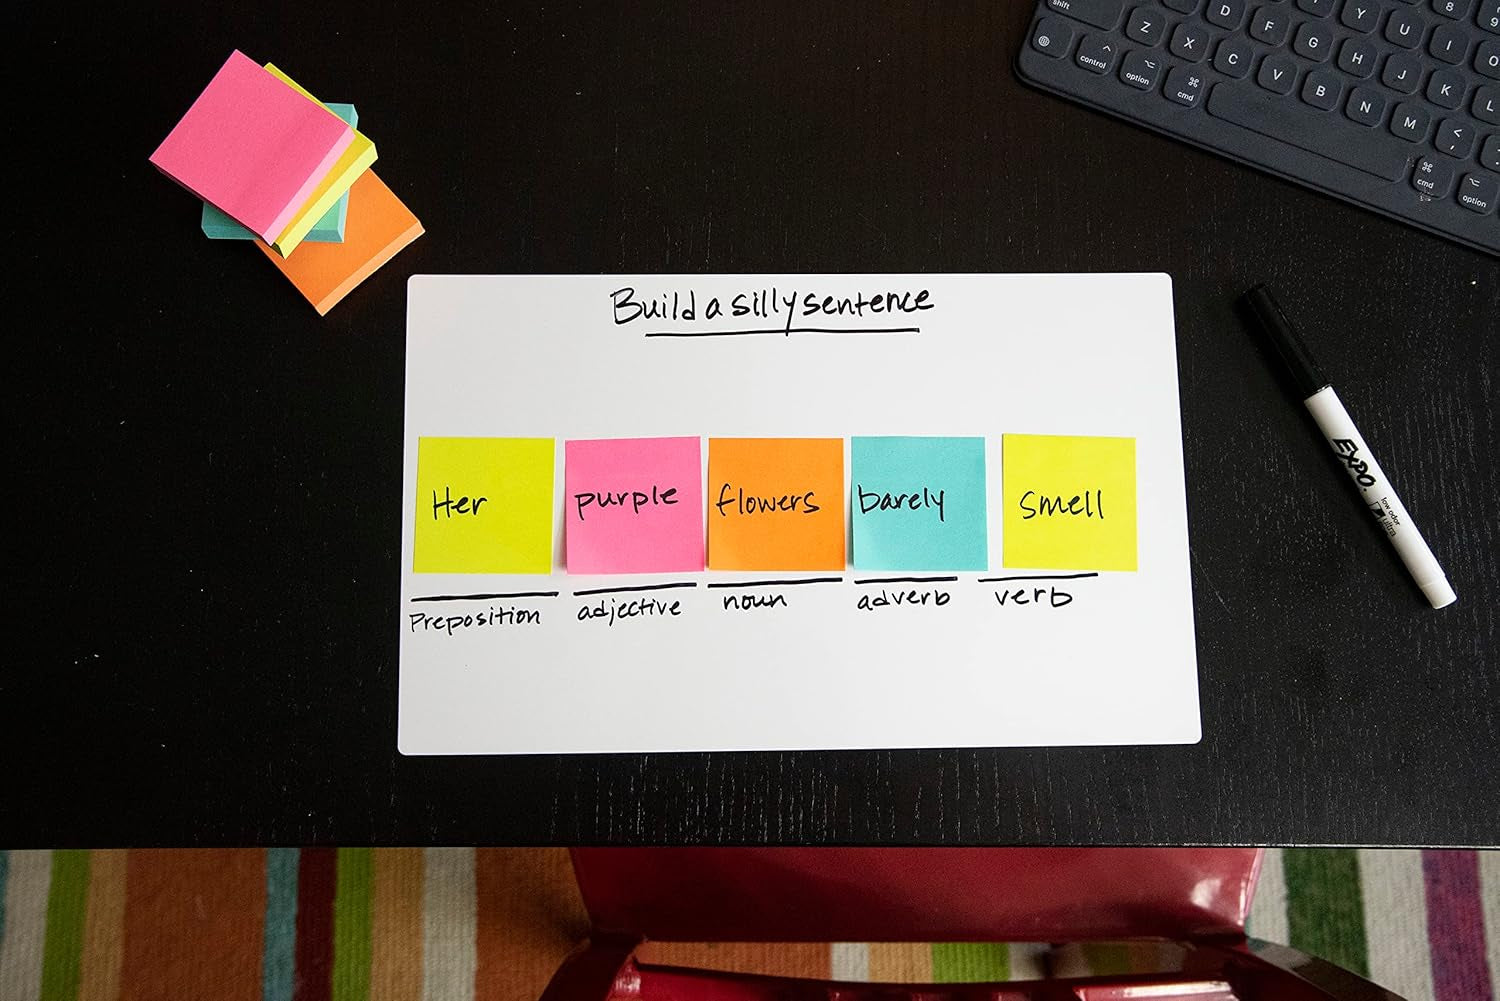 Build a silly sentence
Her purple flowers barely smell
Preposition adjective noun adverb verb
shift
Z X C V B N M < ,
D F G H J K L
Y U I O
8 9
control option cmd
cmd option
EXPO
low odor
ultra